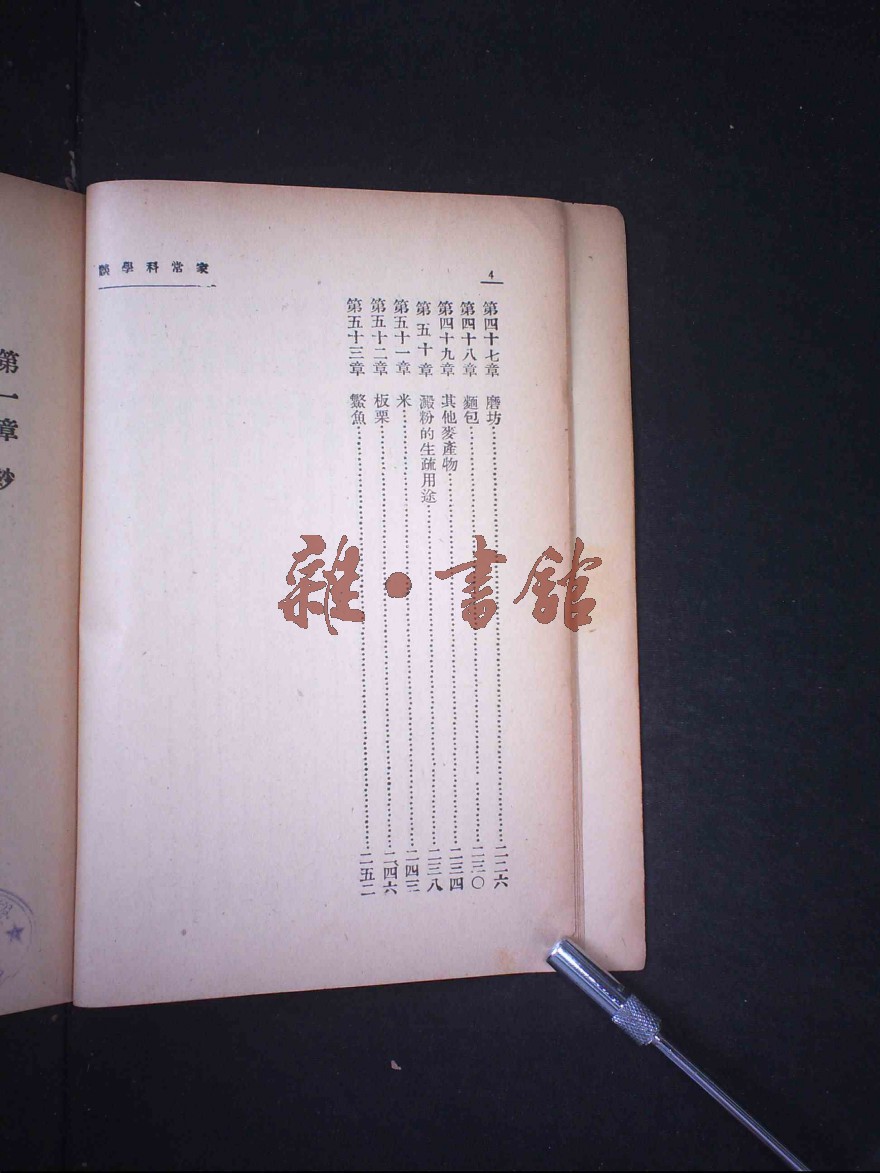 4
家常科學談
第四十七章 磨坊……二二六
第四十八章 麵包……二三〇
第四十九章 其他麥產物……二三四
第五十章 澱粉的生疏用途……二三八
第五十一章 米……二四三
第五十二章 板栗……二四六
第五十三章 鱉魚……二五二
雜·書館
第一章